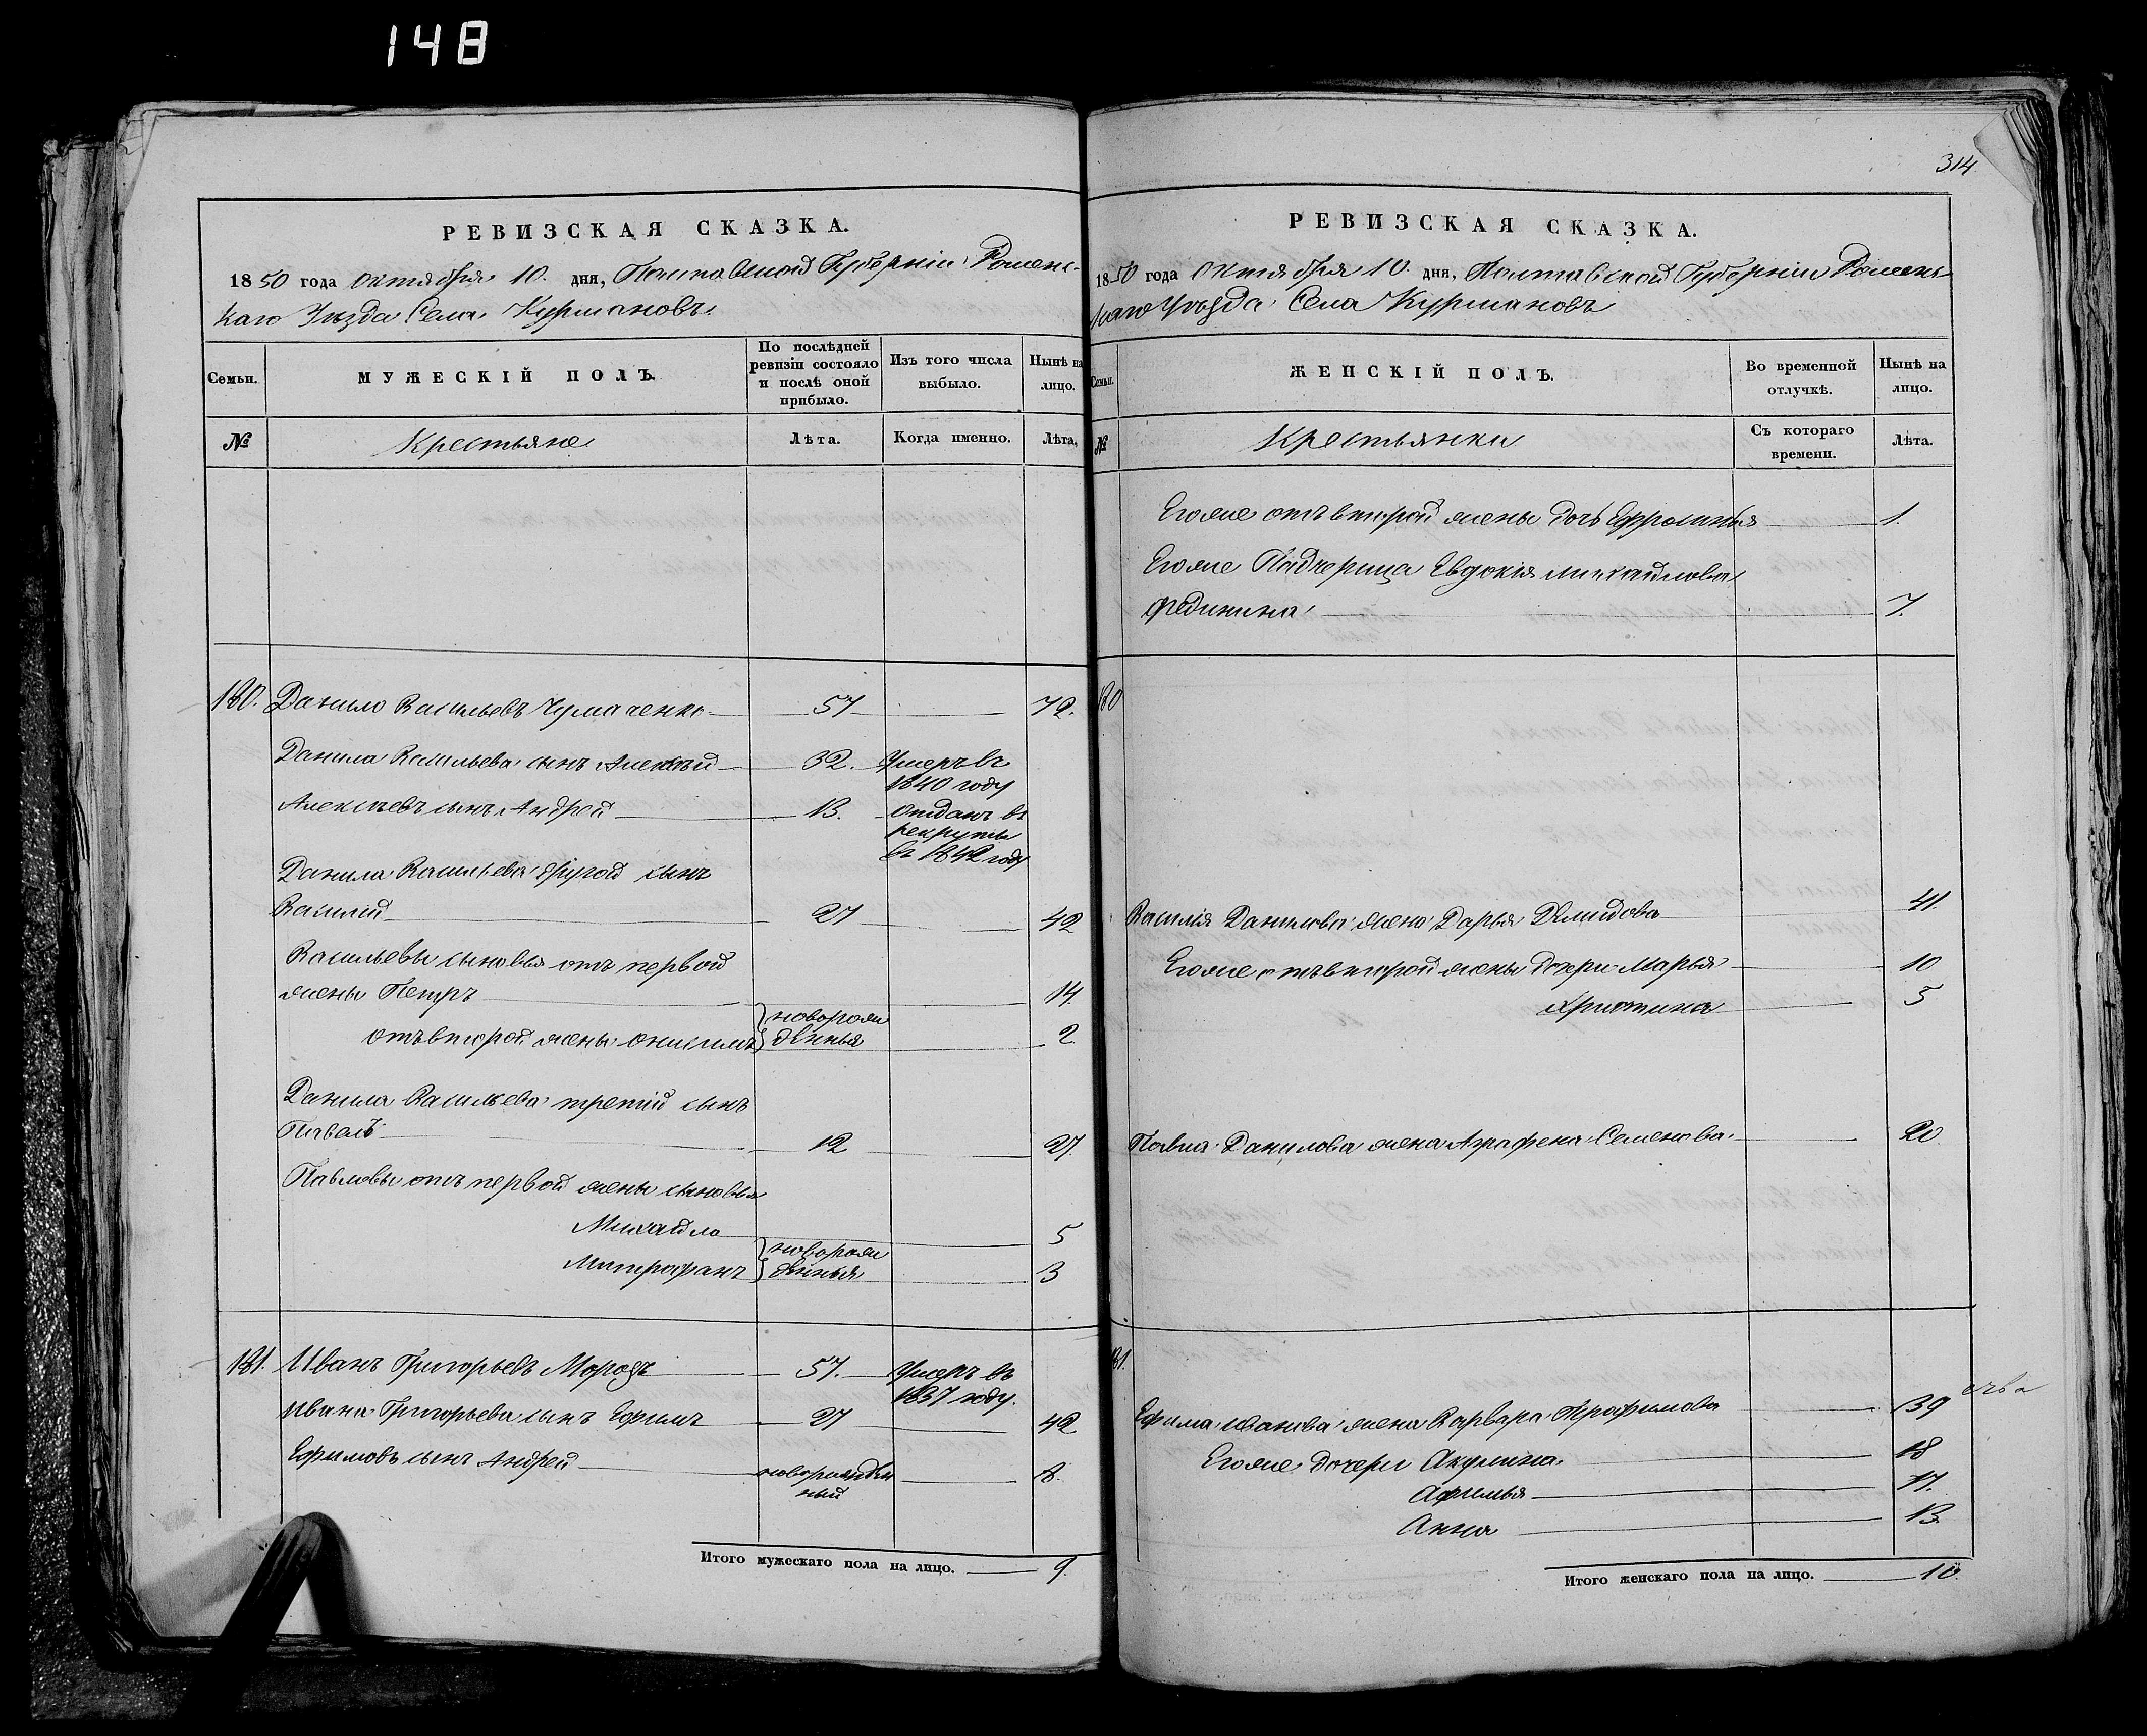 148
РЕВИЗСКАЯ СКАЗКА.
1850 года октября 10. дня, Полтавской Губерніи Роменс-
каго Уѣзда Села Курмановъ
Семьи.
МУЖЕСКІЙ ПОЛЪ.
По послѣдней ревизіи состояло и послѣ оной прибыло.
Изъ того числа выбыло.
Нынѣ на лицо.
№
Крестьяне
Лѣта.
Когда именно.
Лѣта.
180. Данило Васильевъ Чумаченко 57 72.
Данила Васильева сынъ Алексѣй 32. Умеръ въ
1840 году
Алексѣевъ сынъ Андрей 13. отданъ въ
рекруты
въ 1842 году
Данила Васильева другой сынъ
Василій 27 42
Васильевы сыновья отъ первой
жены Петръ 14
новорож
отъ второй жены Онисимъ денныя 2
Данила Васильева третій сынъ
Павелъ 12 27.
Павловы отъ первой жены сыновья
Михайло 5
новорож
Митрофанъ денныя 3
181. Иванъ Григорьевъ Морозъ 57. Умеръ въ
1837 году.
Ивана Григорьева сынъ Ефимъ 27 42
Ефимовъ сынъ Андрей новорожден 8.
ный
Итого мужескаго пола на лицо. 9.
314
РЕВИЗСКАЯ СКАЗКА.
1850 года октября 10. дня, Полтавской Губерніи Ромен
скаго Уѣзда Села Курмановъ
Семьи.
ЖЕНСКІЙ ПОЛЪ.
Во временной отлучкѣ.
Нынѣ на лицо.
№
Крестьянки
Съ котораго времени.
Лѣта.
Егоже отъ второй жены дочь Ефросинья 1.
Егоже Падчерица Евдокія Михайлова
Фединина 7.
180
Василія Данилова жена Дарья Демидова 41.
Егоже отъ второй жены дочери Марья 10
Христина 5
Павла Данилова жена Аграфена Семенова 20
181.
Ефима Иванова жена Варвара Трофимова 39
Егоже дочери Акулина 18
Афимья 17.
Анна 13.
Итого женскаго пола на лицо. 10.